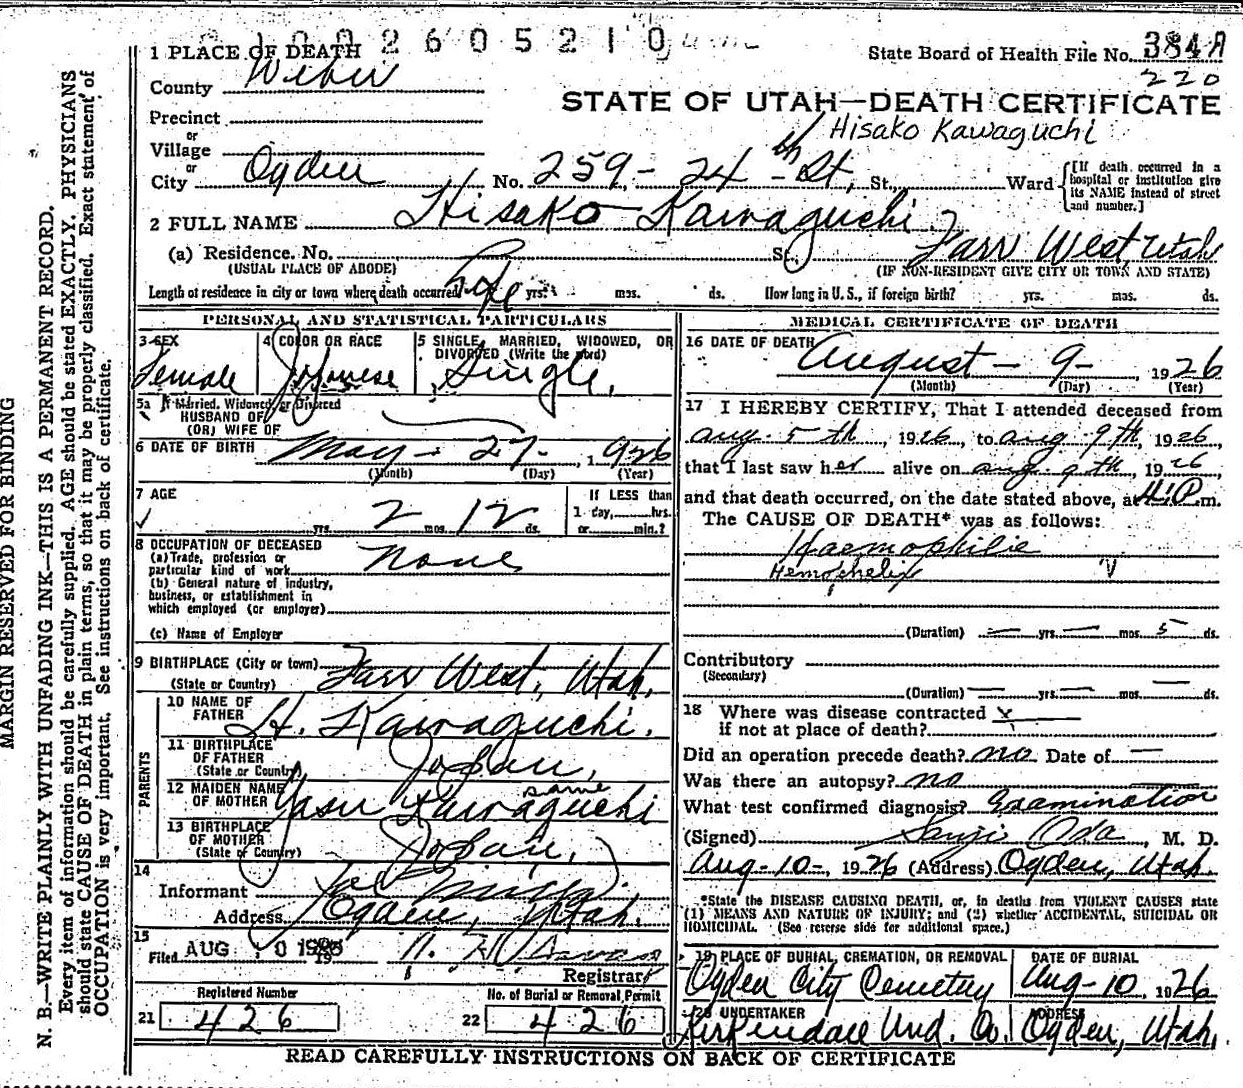 0 1 0 0 2 6 0 5 2 1 0
1 PLACE OF DEATH
State Board of Health File No. 384A
220
County Weber
STATE OF UTAH—DEATH CERTIFICATE
Precinct
or
Hisako Kawaguchi
Village
or
City Ogden No. 259 - 24th St, St., Ward
[If death occurred in a hospital or institution give its NAME instead of street and number.]
2 FULL NAME Hisako Kawaguchi
(a) Residence. No. St, Farr West, Utah
(USUAL PLACE OF ABODE) (IF NON-RESIDENT GIVE CITY OR TOWN AND STATE)
Length of residence in city or town where death occurred Life yrs. mos. ds. How long in U.S., if foreign birth? yrs. mos. ds.
PERSONAL AND STATISTICAL PARTICULARS
3 SEX
Female
4 COLOR OR RACE
Japanese
5 SINGLE, MARRIED, WIDOWED, OR DIVORCED (Write the word)
Single,
5a If Married, Widowed or Divorced
HUSBAND OF
(OR) WIFE OF
6 DATE OF BIRTH May - 27 - 1926
(Month) (Day) (Year)
7 AGE
yrs. 2 mos. 12 ds.
If LESS than
1 day, hrs.
or min.?
8 OCCUPATION OF DECEASED
(a) Trade, profession or
particular kind of work None
(b) General nature of industry,
business, or establishment in
which employed (or employer)
(c) Name of Employer
9 BIRTHPLACE (City or town) Farr West, Utah.
(State or Country)
PARENTS
10 NAME OF
FATHER H. Kawaguchi.
11 BIRTHPLACE
OF FATHER
(State or Country) Japan,
12 MAIDEN NAME same
OF MOTHER Yasu Kawaguchi
13 BIRTHPLACE
OF MOTHER
(State or Country) Japan,
14
Informant
Address Ogden, Utah.
15
Filed AUG 10 1926
Registrar
Registered Number
21 426
No. of Burial or Removal Permit
22 426
MEDICAL CERTIFICATE OF DEATH
16 DATE OF DEATH August - 9 - , 1926
(Month) (Day) (Year)
17 I HEREBY CERTIFY, That I attended deceased from
Aug. 5th, 1926, to Aug. 9th, 1926,
that I last saw her alive on Aug. 9th, 1926
and that death occurred, on the date stated above, at 4 P. m.
The CAUSE OF DEATH* was as follows:
Haemophilie
Hemophelix
(Duration) — yrs. — mos. 5 ds.
Contributory
(Secondary)
(Duration) — yrs. — mos. — ds.
18 Where was disease contracted x
if not at place of death?
Did an operation precede death? no Date of —
Was there an autopsy? no
What test confirmed diagnosis? Examination
(Signed) Sanji Oda, M. D.
Aug - 10 -, 1926 (Address) Ogden, Utah.
*State the DISEASE CAUSING DEATH, or, in deaths from VIOLENT CAUSES state
(1) MEANS AND NATURE OF INJURY; and (2) whether ACCIDENTAL, SUICIDAL OR
HOMICIDAL. (See reverse side for additional space.)
19 PLACE OF BURIAL, CREMATION, OR REMOVAL
Ogden City Cemetery
DATE OF BURIAL
Aug-10, 1926
20 UNDERTAKER
Kirkendall Und. Co.
ADDRESS
Ogden, Utah,
READ CAREFULLY INSTRUCTIONS ON BACK OF CERTIFICATE
MARGIN RESERVED FOR BINDING
N. B.—WRITE PLAINLY WITH UNFADING INK—THIS IS A PERMANENT RECORD.
Every item of information should be carefully supplied. AGE should be stated EXACTLY. PHYSICIANS
should state CAUSE OF DEATH in plain terms, so that it may be properly classified. Exact statement of
OCCUPATION is very important. See instructions on back of certificate.